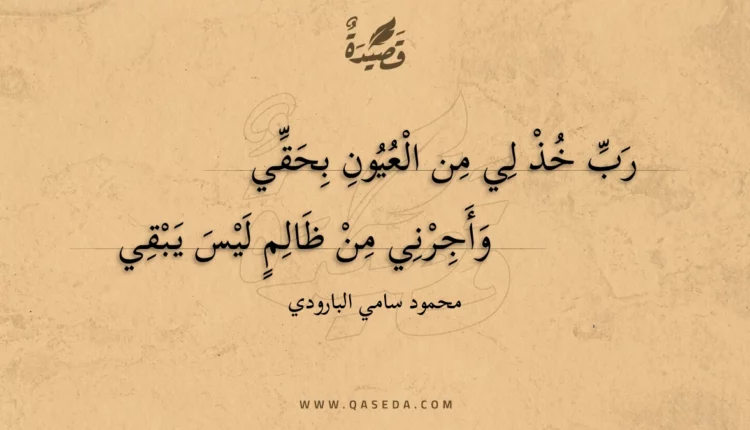 قَصِيْدَةٌ
رَبِّ خُذْ لِي مِن الْعُيُونِ بِحَقِّي
وَأَجِرْنِي مِنْ ظَالِمٍ لَيْسَ يَبْقِي
محمود سامي البارودي
WWW.QASEDA.COM